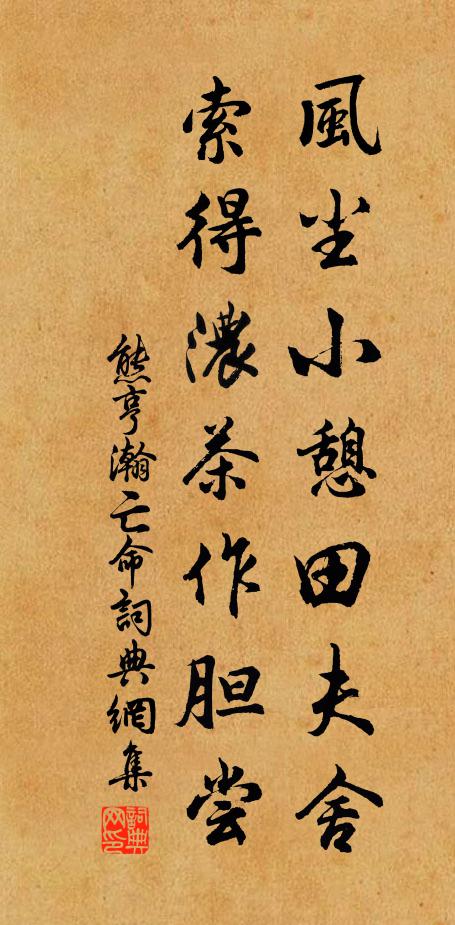 風尘小憩田夫舍
索得濃茶作胆尝
熊亨瀚亡命詞典網集
詞典网印